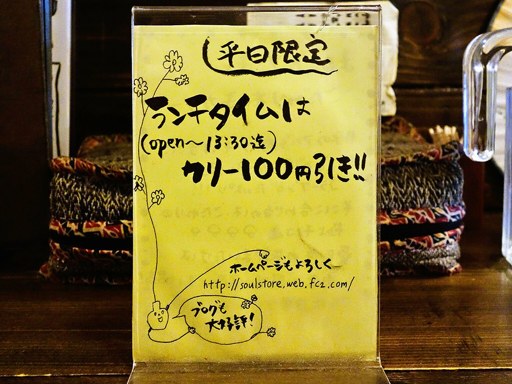 平日限定
ランチタイムは
(open～13:30迄)
カリー100円引き!!
ホームページもよろしく
http://soulstore.web.fc2.com/
ブログも
大好評!